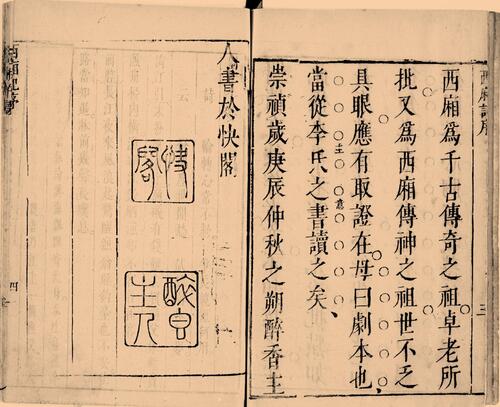 西廂記序
西廂爲千古傳奇之祖卓老所
批又爲西廂傳神之祖世不乏
具眼應有取證在毋曰劇本也
當從李氏之書讀之矣
崇禎歲庚辰仲秋之朔醉香主
三
人書於快閣
快閣
醉香主人
西廂記序
四